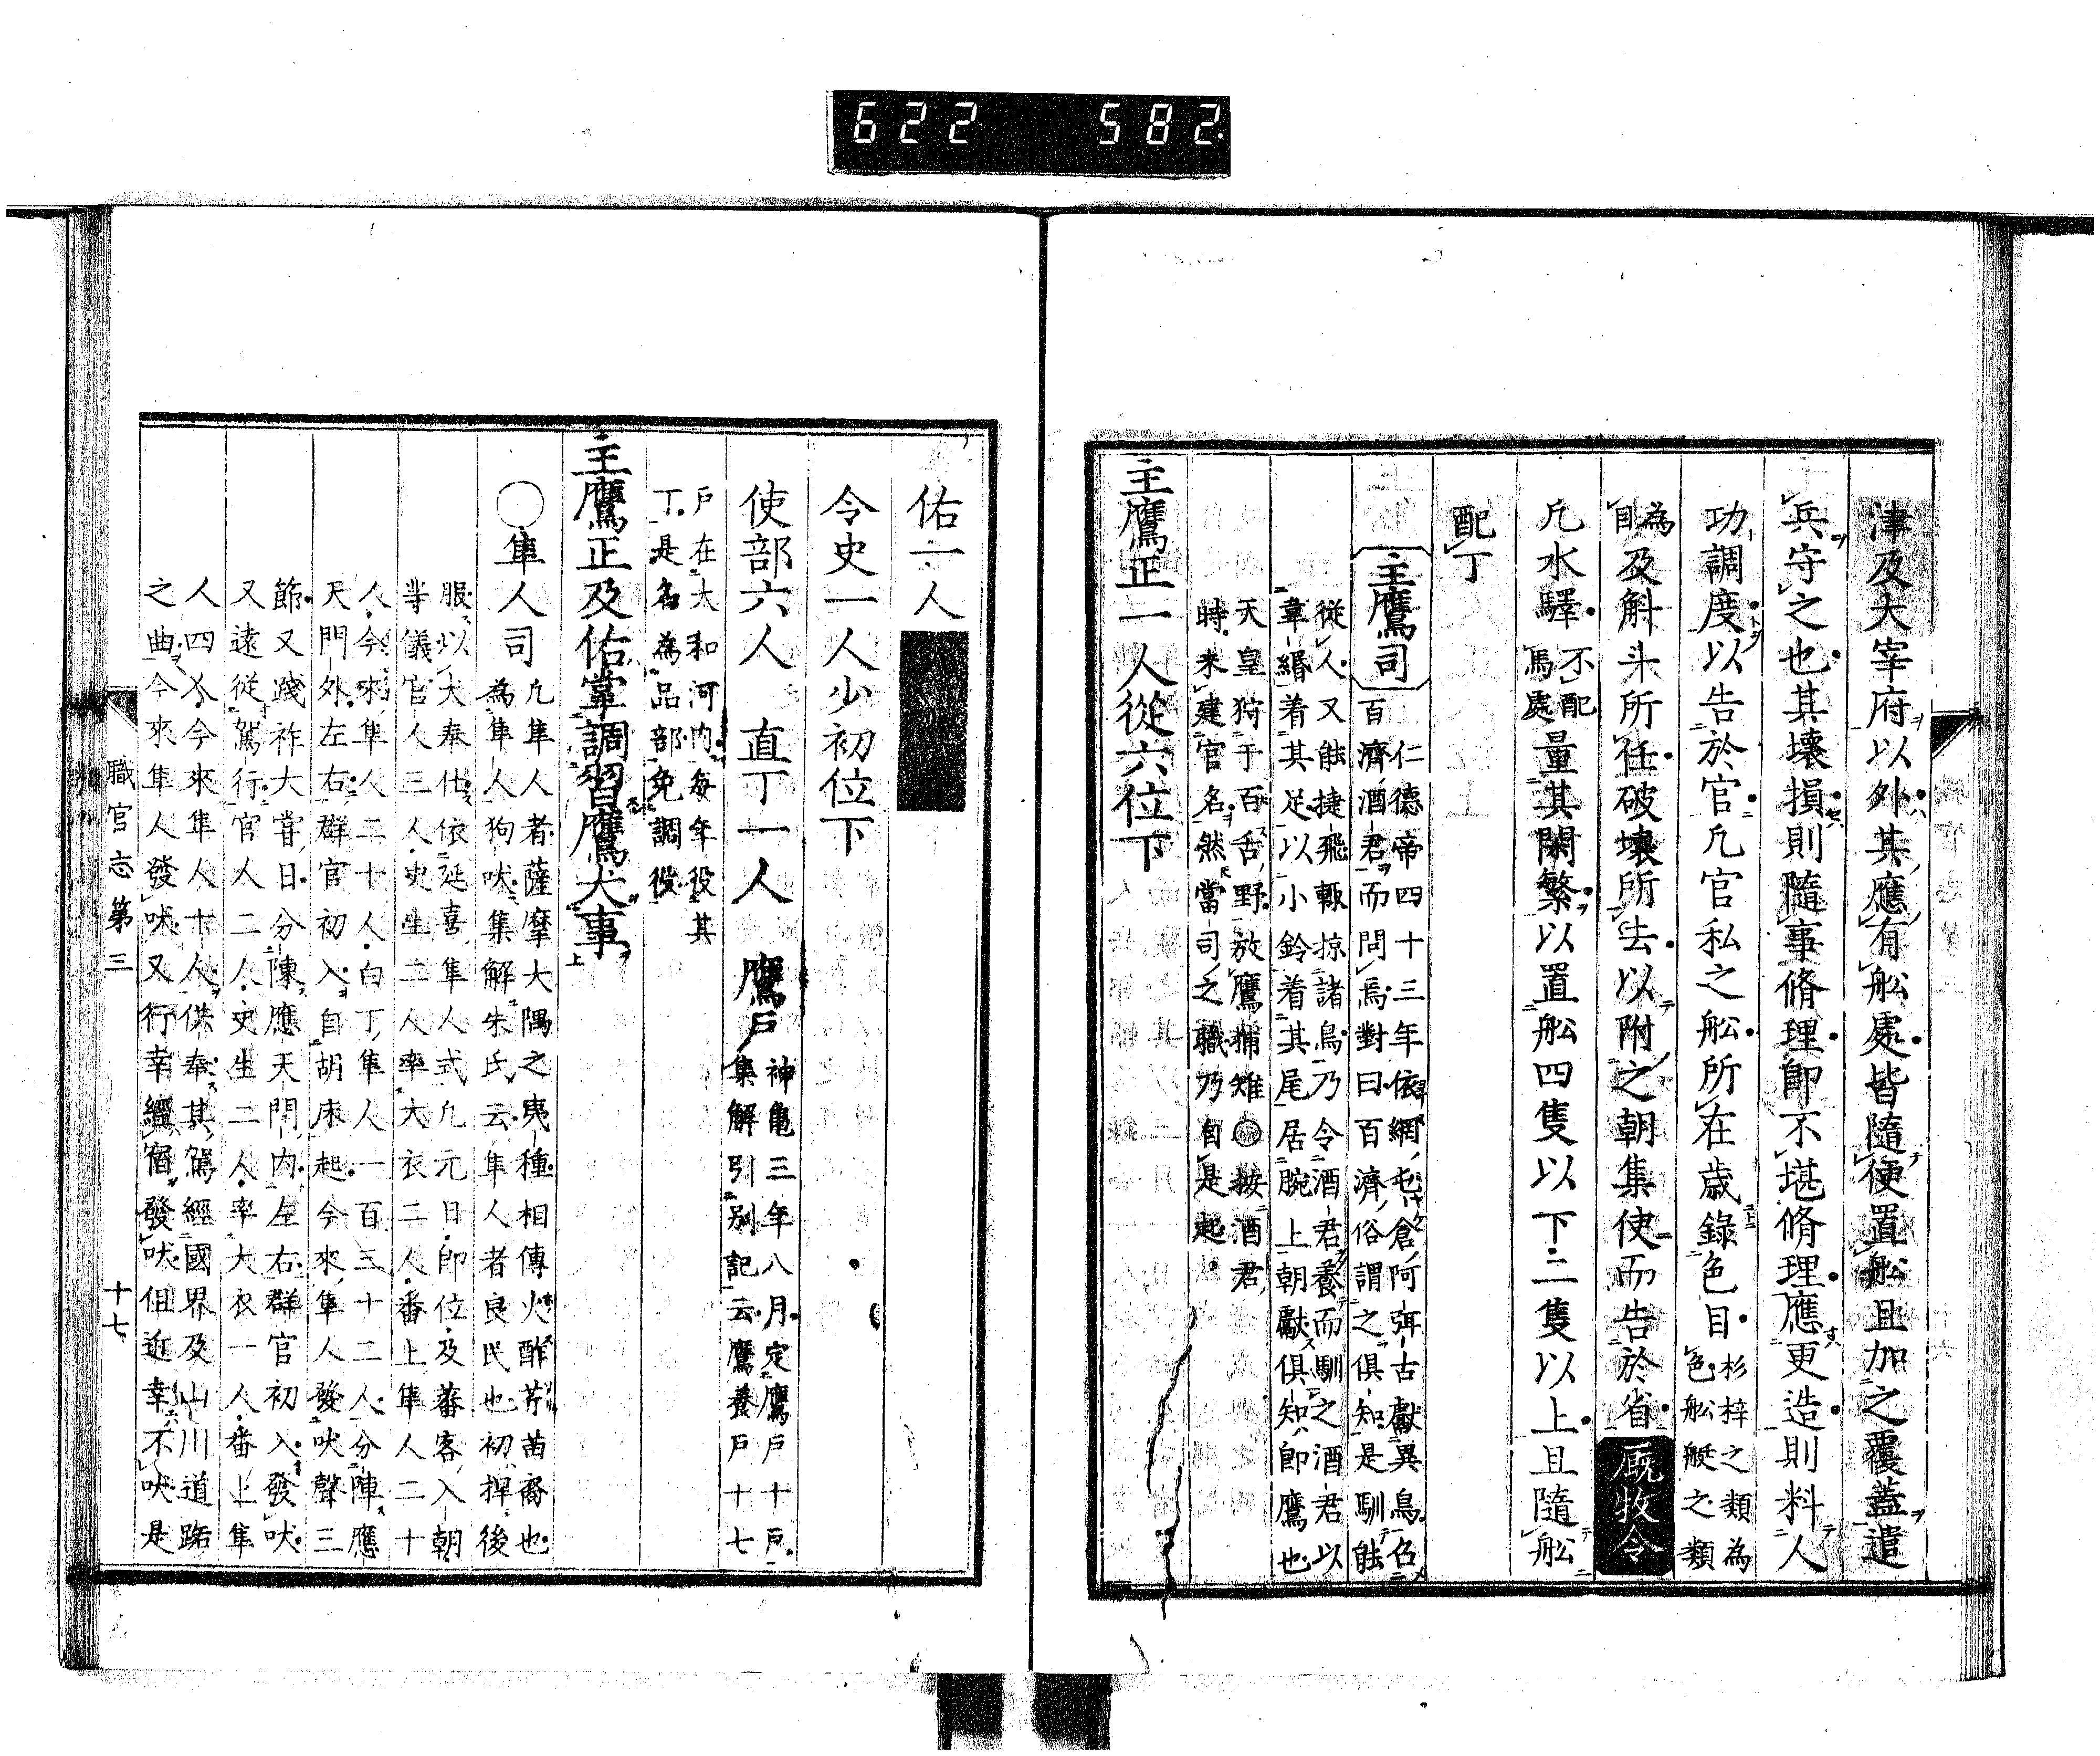 622 582
津及大宰府以外其應有舩處皆隨便置舩且加之覆蓋遣
兵守之也其壞損則隨事脩理卽不堪脩理應更造則料人
功調度以告於官凡官私之舩所在歲錄色目杉梓之類為
色舩艇之類
為
目及斛斗所任破壞所去以附之朝集使而告於省厩牧令
凡水驛不配
馬處量其閑繁以置舩四隻以下二隻以上且隨舩
配丁
主鷹司仁德帝四十三年依網屯倉阿弭古獻異鳥召
百濟酒君而問焉對曰百濟俗謂之俱知是馴能
從人又能捷飛輙掠諸鳥乃令酒君養而馴之酒君以
韋緡着其足以小鈴着其尾居腕上朝獻俱知卽鷹也
天皇狩于百舌野放鷹捕雉○按酒君
時未建官名然當司之職乃自是起
主鷹正一人從六位下
佑一人
令史一人少初位下
使部六人 直丁一人 鷹戶神亀三年八月定鷹戶十戶
集解引别記云鷹養戶十七
戶在大和河内每年役其
丁是名為品部免調役
主鷹正及佑掌調習鷹犬事
○隼人司凡隼人者薩摩大隅之夷種相傳火酢芹苗裔也
為隼人狗吠集解朱氏云隼人者良民也初捍後
服以犬奉仕依延喜隼人式凡元日卽位及蕃客入朝
等儀官人三人史生二人率大衣二人番上隼人二十
人今來隼人二十人白丁隼人一百三十二人分陣應
天門外左右群官初入自胡床起今來隼人發吠聲三
節又踐祚大嘗日分陳應天門内左右群官初入發吠
又遠從駕行官人二人史生二人率大衣一人番上隼
人四人今來隼人十人供奉其駕經國界及山川道路
之曲今來隼人發吠又行幸經宿發吠但近幸不吠是
職官志第三
十七